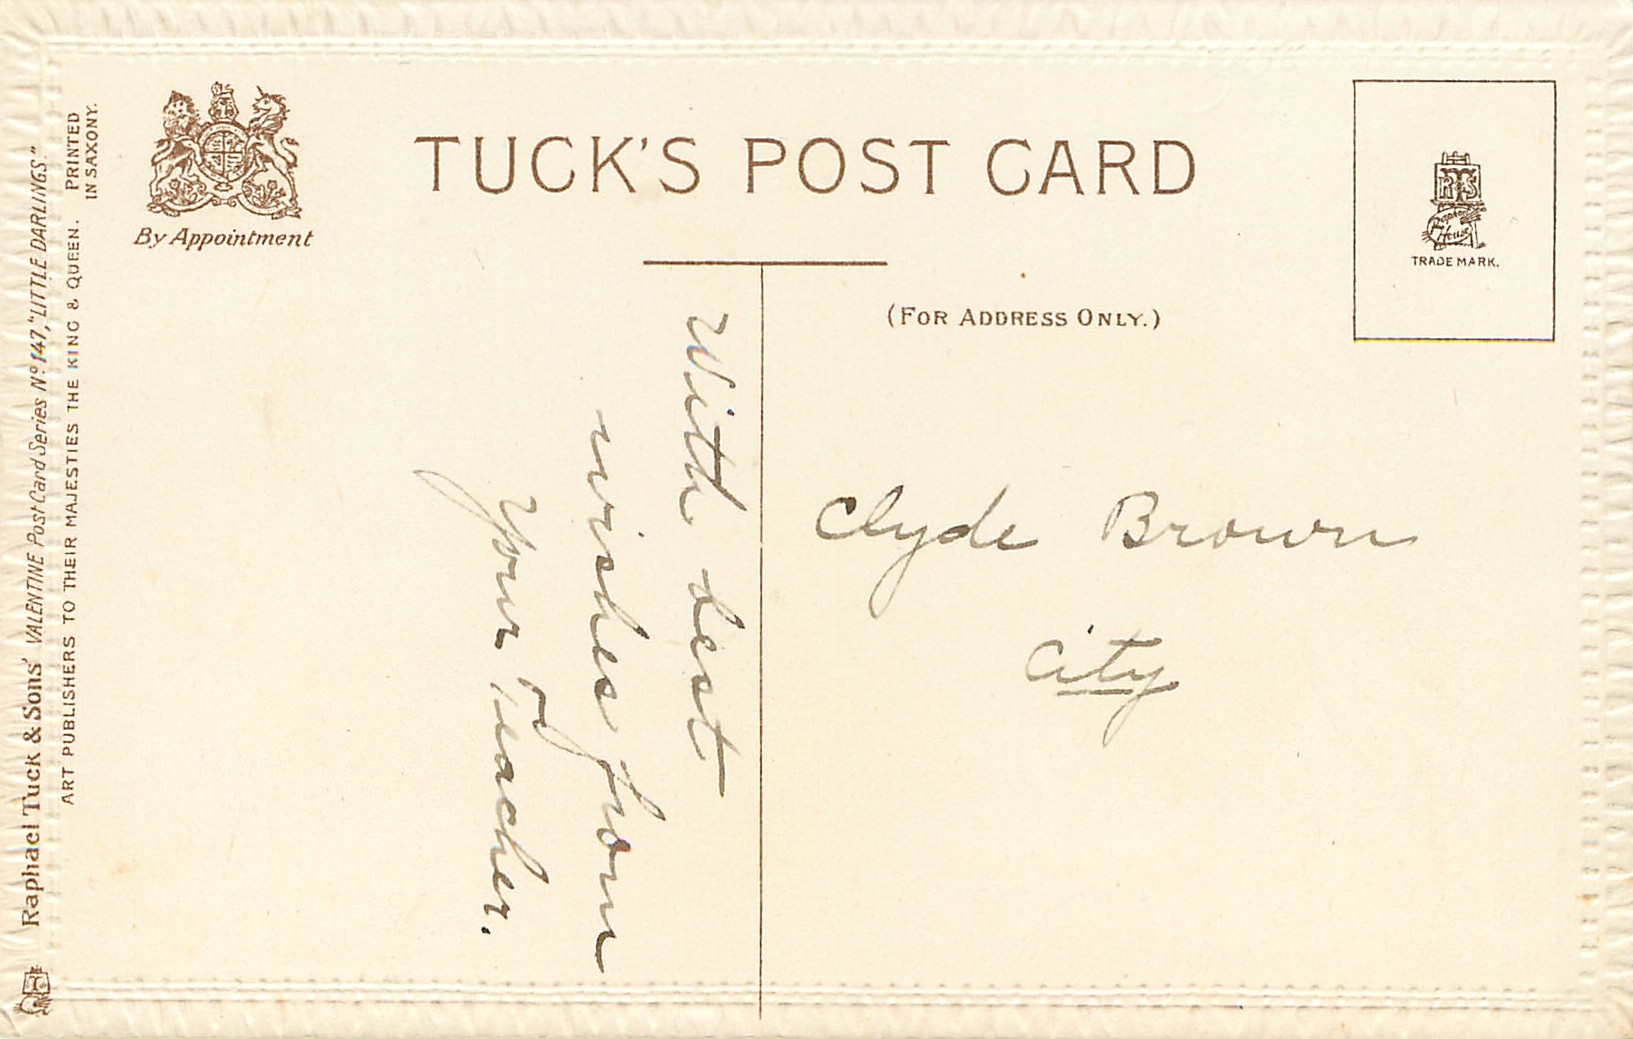 TUCK'S POST CARD
By Appointment
(FOR ADDRESS ONLY.)
RTS
Raphael
House
TRADE MARK.
Raphael Tuck & Sons' VALENTINE Post Card Series No. 147, "LITTLE DARLINGS."
ART PUBLISHERS TO THEIR MAJESTIES THE KING & QUEEN.
PRINTED
IN SAXONY.
With best
wishes from
your Teacher.
Clyde Brown
City